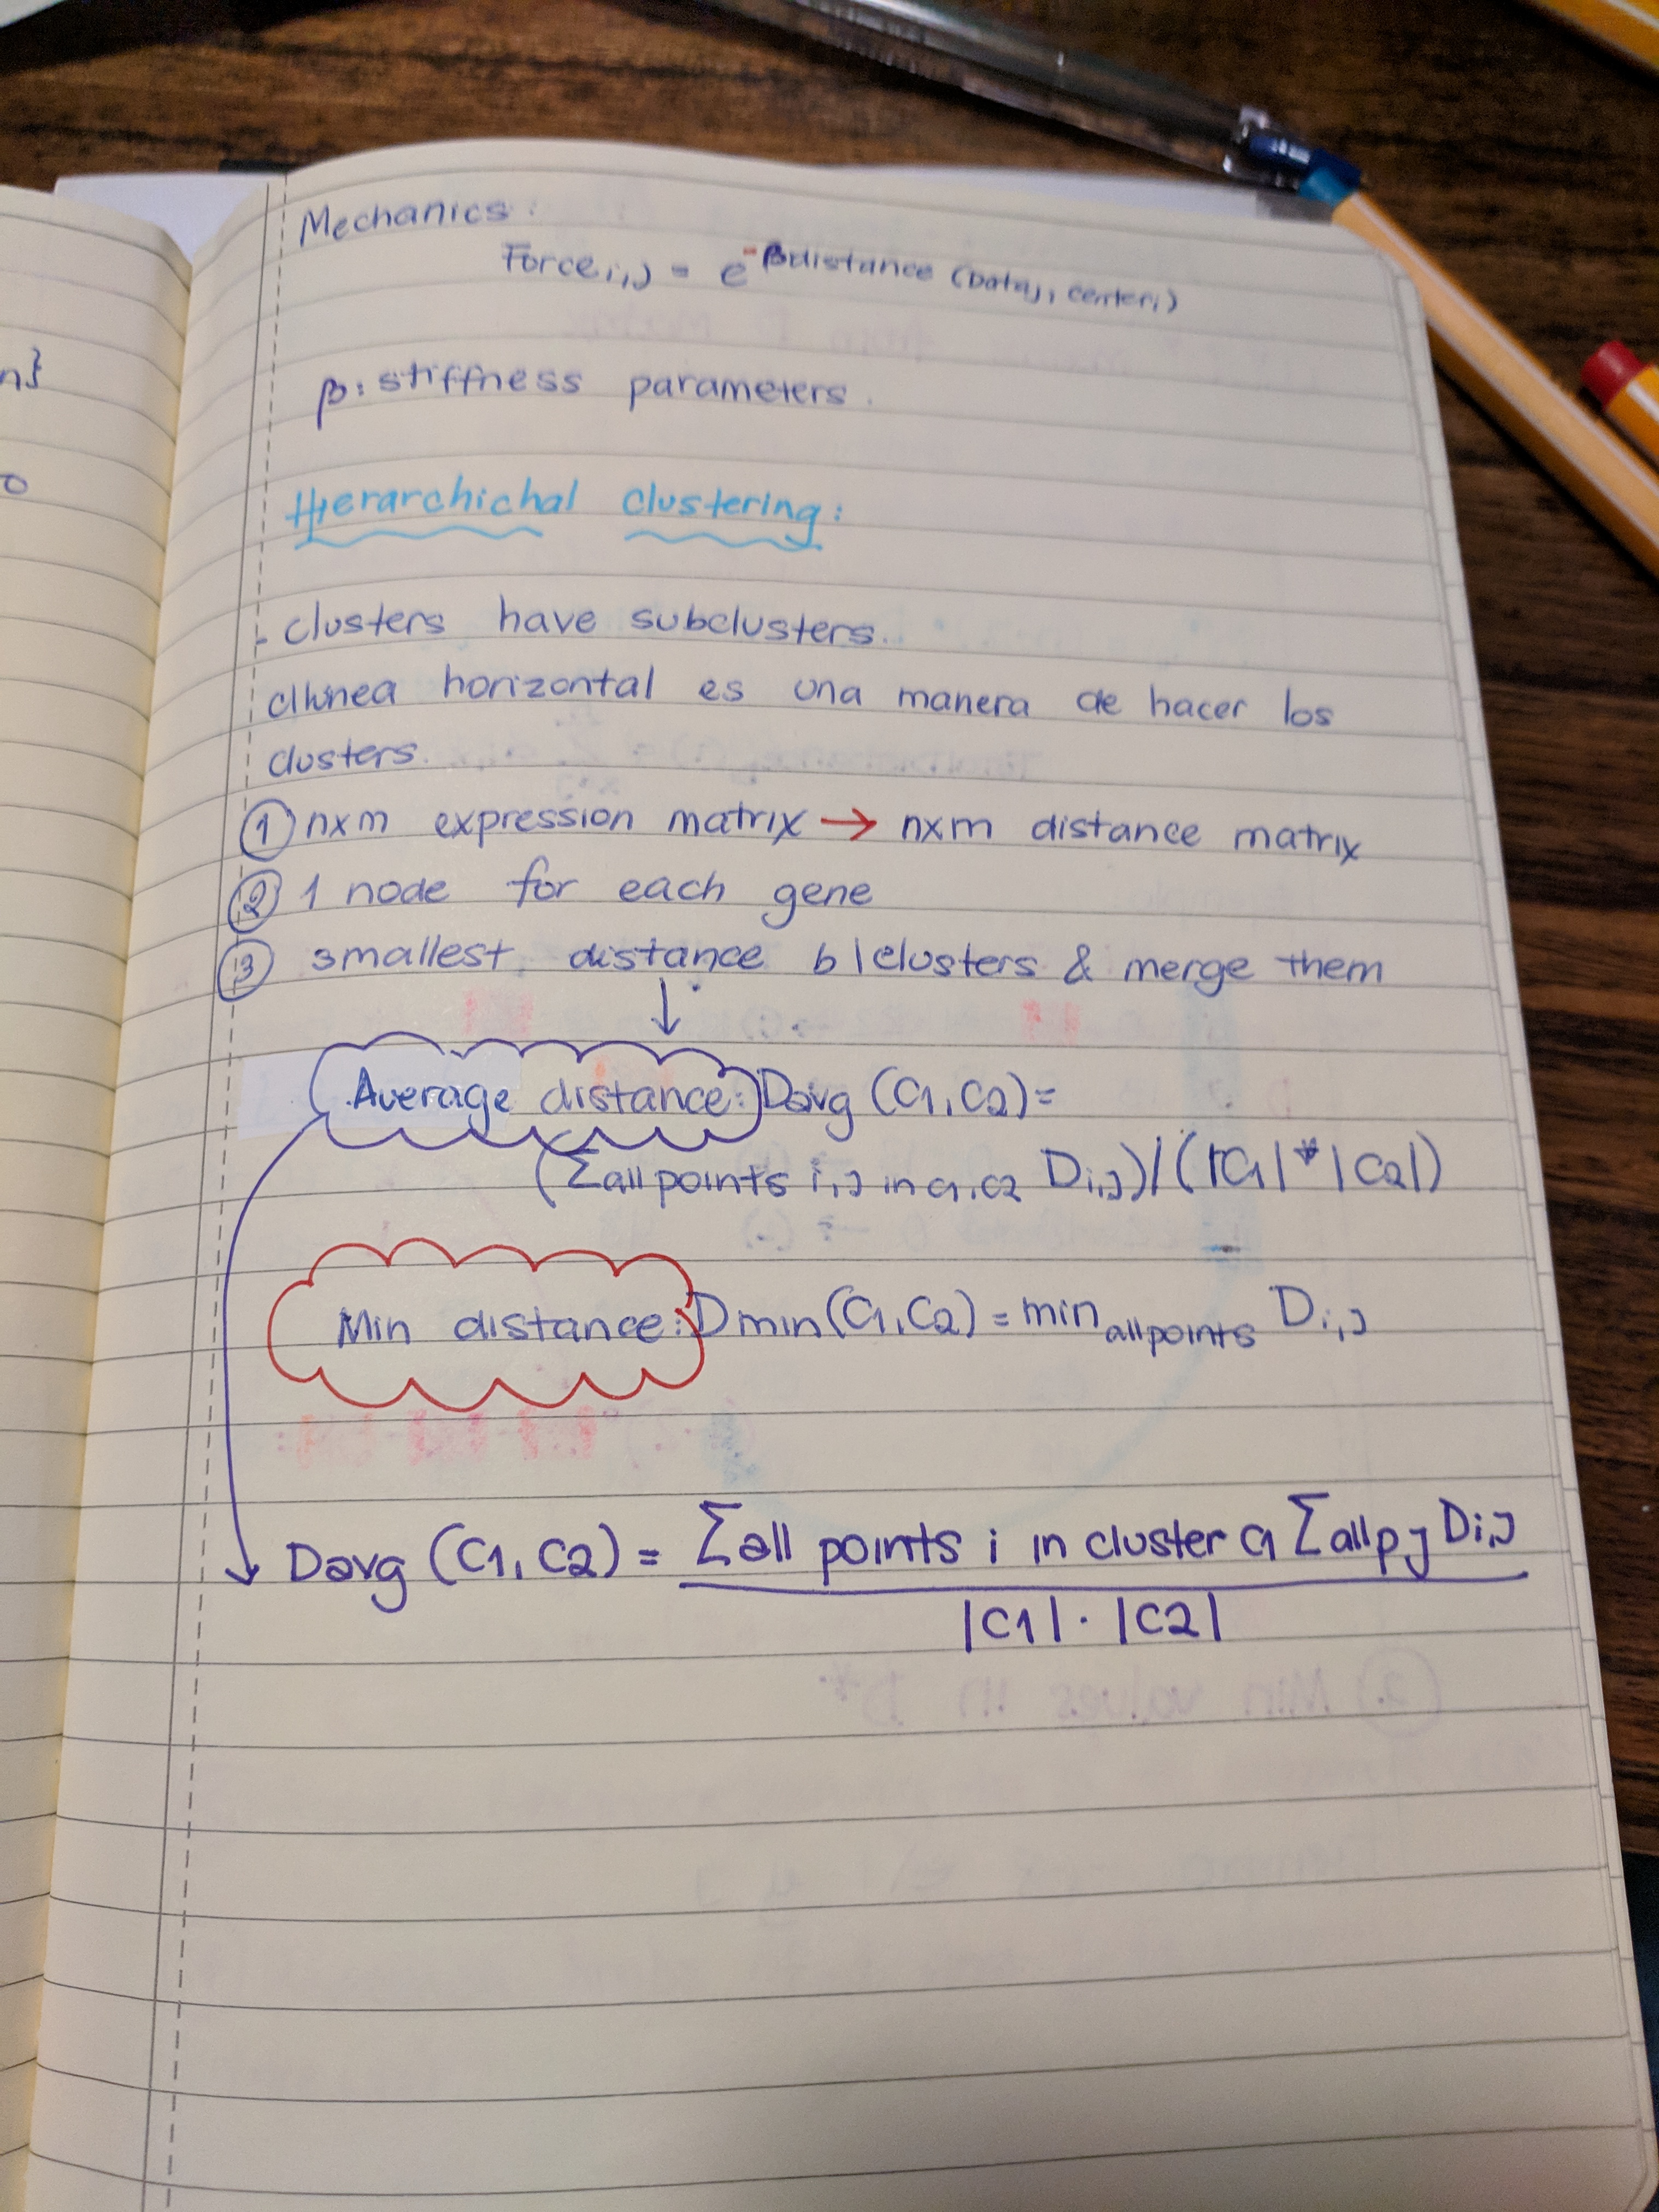 n}
o
Mechanics:
Force i,j = e^-βdistance (Dataj, centeri)
β: stiffness parameters.
Hierarchichal Clustering:
- clusters have subclusters.
horizontal es una manera de hacer los
clusters.
① nxm expression matrix → nxm distance matrix
② 1 node for each gene
③ smallest distance b|clusters & merge them
↓
Average distance: Davg (C1, C2) =
(Σ all points i,j in C1, C2 Di,j) / (|C1| * |C2|)
Min distance: Dmin (C1, C2) = min all points Di,j
Davg (C1, C2) = Σ all points i in cluster C1 Σ all p j Di,j
|C1| · |C2|